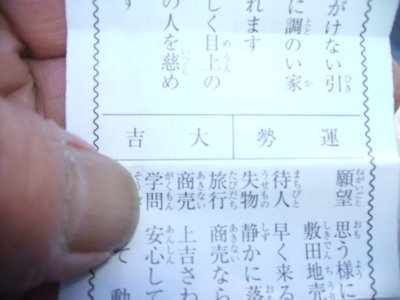 がけない引
に調のい家
れます
しく目上の
の人を慈め
す
運勢
大吉
願望 思う様に
敷田地売
待人 早く来る
失物 静かに落
旅行 商売なら
商売 上吉さわ
学問 安心して
て 動